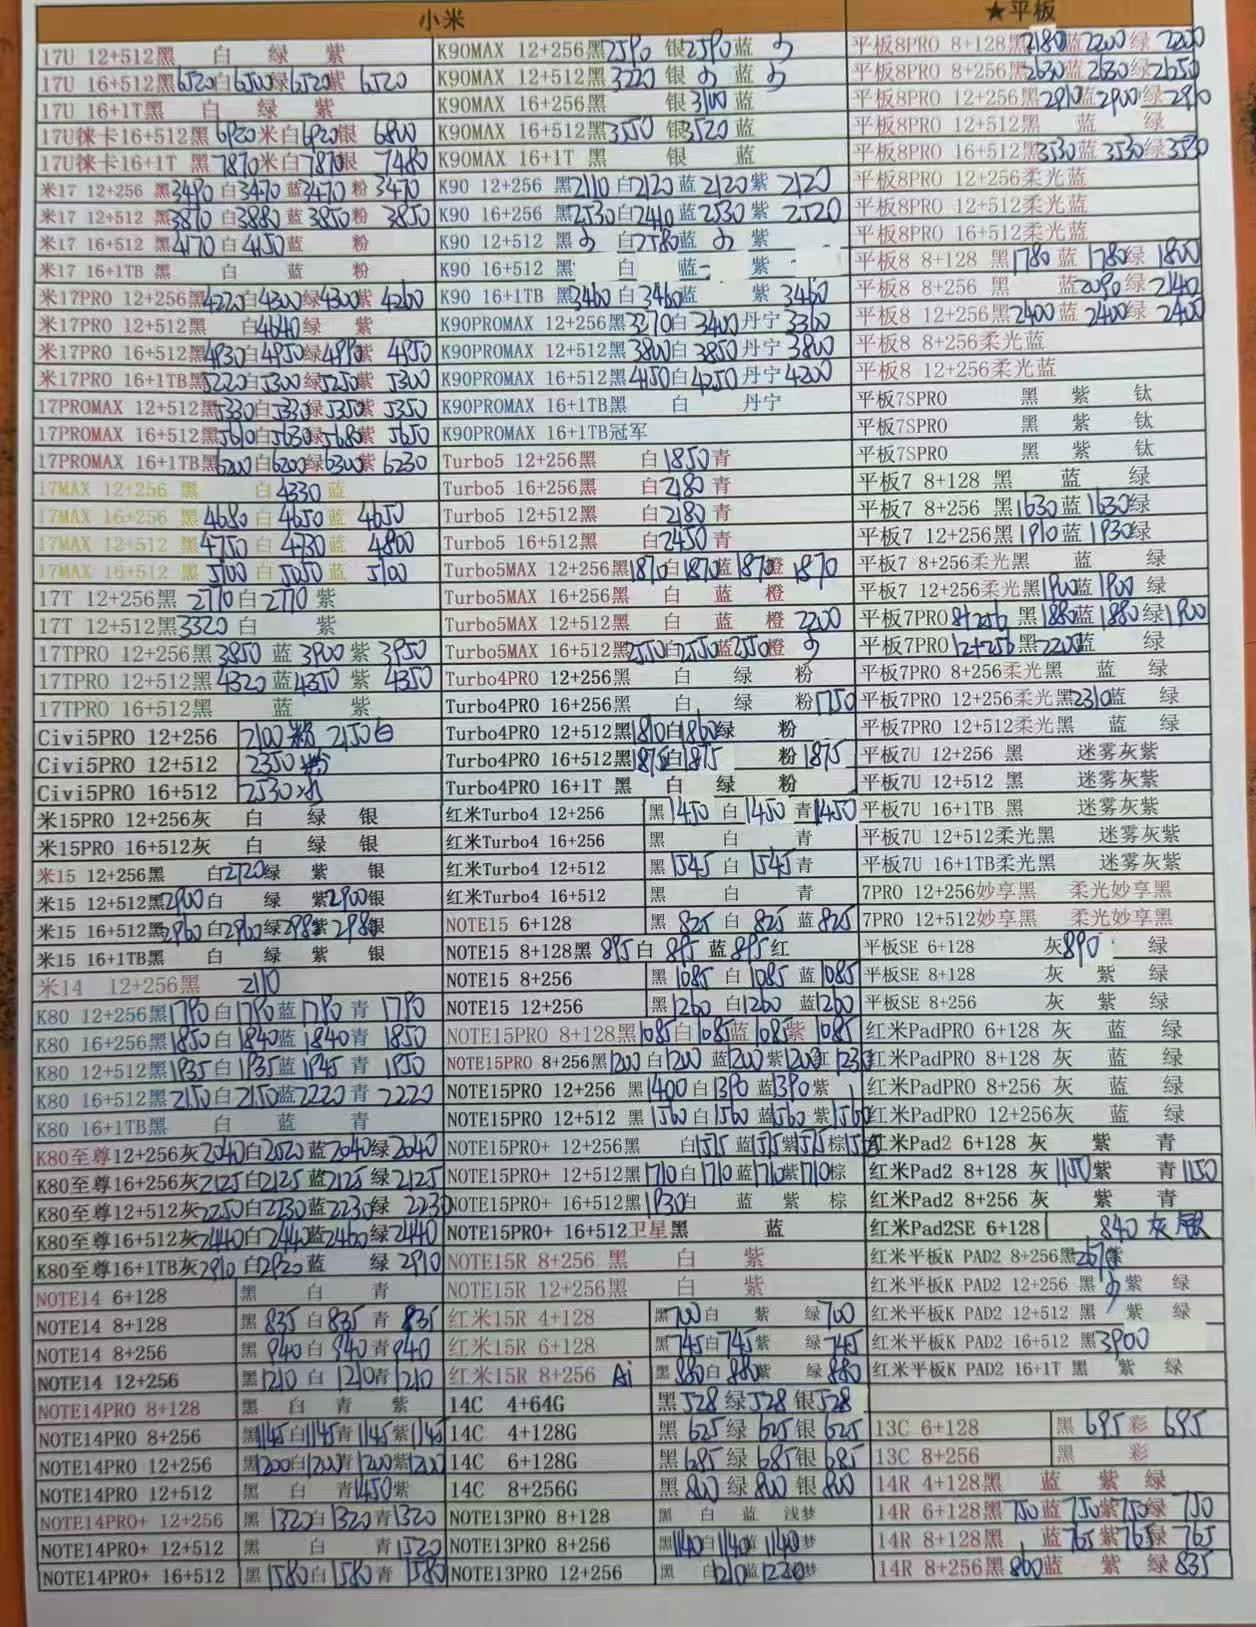 小米
17U 12+512黑 白 绿 紫
17U 16+512黑6520白6500绿6520紫 6520
17U 16+1T黑 白 绿 紫
17U徕卡16+512黑 6920米白6920银 6800
17U徕卡16+1T 黑 7870米白7870银 7480
米17 12+256 黑3490白3470蓝3470粉 3470
米17 12+512 黑3870白3880蓝3850粉 3850
米17 16+512 黑4170白4150蓝 粉
米17 16+1TB 黑 白 蓝 粉
米17PRO 12+256黑4220白4300绿4300紫 4260
米17PRO 12+512黑 白4640绿 紫
米17PRO 16+512黑4930白4950绿4990紫 4950
米17PRO 16+1TB黑5220白5300绿5250紫 5300
17PROMAX 12+512黑5330白5330绿5350紫 5350
17PROMAX 16+512黑5610白5630绿5680紫 5650
17PROMAX 16+1TB黑6200白6200绿6300紫 6230
17MAX 12+256 黑 白4330蓝
17MAX 16+256 黑 4680白 4650 蓝 4650
17MAX 12+512 黑 4750 白 4730 蓝 4800
17MAX 16+512 黑 5100 白 5050 蓝 5100
17T 12+256黑 2770白2770 紫
17T 12+512黑3320白 紫
17TPRO 12+256黑3850 蓝 3900紫 3950
17TPRO 12+512黑4320 蓝4350 紫 4350
17TPRO 16+512黑 蓝 紫
Civi5PRO 12+256 2100粉 2150白
Civi5PRO 12+512 2350粉
Civi5PRO 16+512 2530
米15PRO 12+256灰 白 绿 银
米15PRO 16+512灰 白 绿 银
米15 12+256黑 白2720绿 紫 银
米15 12+512黑2900白 绿 紫2900银
米15 16+512黑2960白2960绿298紫298银
米15 16+1TB黑 白 绿 紫 银
米14 12+256黑 2110
K80 12+256黑1790白1790蓝1790青 1790
K80 16+256黑1850白1840蓝1840青 1850
K80 12+512黑1935白1935蓝1945青 1950
K80 16+512黑2150白2150蓝2220青 2220
K80 16+1TB黑 白 蓝 青
K80至尊12+256灰2040白2020蓝2040绿2040
K80至尊16+256灰2125白2125蓝2125绿2125
K80至尊12+512灰2250白2230蓝2230绿 2230
K80至尊16+512灰2440白2440蓝2460绿2440
K80至尊16+1TB灰2910白2920蓝 绿 2910
NOTE14 6+128 黑 白 青
NOTE14 8+128 黑 835白 835青 835
NOTE14 8+256 黑 940白 940青940
NOTE14 12+256 黑1210白 1210青1210
NOTE14PRO 8+128 黑 白 青 紫
NOTE14PRO 8+256 黑1145白1145青1145紫1145
NOTE14PRO 12+256 黑1200白1200青1200紫1200
NOTE14PRO 12+512 黑 白 青1450紫
NOTE14PRO+ 12+256 黑 1320白1320青1320
NOTE14PRO+ 12+512 黑 白 青1520
NOTE14PRO+ 16+512 黑1580白1580青 1580
K90MAX 12+256黑2590 银2590蓝
K90MAX 12+512黑3220 银 蓝
K90MAX 16+256黑 银3100蓝
K90MAX 16+512黑3550 银3520蓝
K90MAX 16+1T 黑 银 蓝
K90 12+256 黑2110白2120蓝2120紫 2120
K90 16+256 黑2530白2410蓝2530紫 2520
K90 12+512 黑 白2580蓝 紫
K90 16+512 黑 白 蓝 紫
K90 16+1TB 黑3460白3460蓝 紫3460
K90PROMAX 12+256黑3370白 3400丹宁 3360
K90PROMAX 12+512黑3800白 3850丹宁 3800
K90PROMAX 16+512黑4150白4250丹宁 4200
K90PROMAX 16+1TB黑 白 丹宁
K90PROMAX 16+1TB冠军
Turbo5 12+256黑 白1850青
Turbo5 16+256黑 白2180青
Turbo5 12+512黑 白2180青
Turbo5 16+512黑 白2450青
Turbo5MAX 12+256黑1870白1870蓝1870橙 1870
Turbo5MAX 16+256黑 白 蓝 橙
Turbo5MAX 12+512黑 白 蓝 橙 2200
Turbo5MAX 16+512黑2550白2550蓝2550橙
Turbo4PRO 12+256黑 白 绿 粉
Turbo4PRO 16+256黑 白 绿 粉1750
Turbo4PRO 12+512黑1810白1860绿 粉
Turbo4PRO 16+512黑1875白1875 粉1875
Turbo4PRO 16+1T 黑 白 绿 粉
红米Turbo4 12+256 黑1450白1450青1450
红米Turbo4 16+256 黑 白 青
红米Turbo4 12+512 黑1545白1545青
红米Turbo4 16+512 黑 白 青
NOTE15 6+128 黑 825白 825蓝825
NOTE15 8+128黑 895白 895蓝895红
NOTE15 8+256 黑1085白1085蓝1085
NOTE15 12+256 黑1260白1260蓝1260
NOTE15PRO 8+128黑1085白1085蓝1085紫 1085
NOTE15PRO 8+256黑1200白1200蓝1200紫1200红 1230
NOTE15PRO 12+256 黑1400白1390蓝1390紫
NOTE15PRO 12+512 黑1560白1560蓝1560紫1560
NOTE15PRO+ 12+256黑 白1515蓝1515紫1515棕
NOTE15PRO+ 12+512黑1710白1710蓝1710紫1710棕
NOTE15PRO+ 16+512黑1930白 蓝 紫 棕
NOTE15PRO+ 16+512卫星黑 蓝
NOTE15R 8+256 黑 白 紫
NOTE15R 12+256 黑 白 紫
红米15R 4+128 黑700白 紫 绿700
红米15R 6+128 黑745白745紫 绿745
红米15R 8+256 Ai 黑880白880紫 绿880
14C 4+64G 黑528绿528银528
14C 4+128G 黑 625绿 625银625
14C 6+128G 黑685绿 685银685
14C 8+256G 黑800绿 800银 800
NOTE13PRO 8+128 黑 白 蓝 浅梦
NOTE13PRO 8+256 黑1140白1140蓝1140梦
NOTE13PRO 12+256 黑 白1210蓝1220梦
★平板
平板8PRO 8+128黑2180蓝2200绿 2200
平板8PRO 8+256黑2630蓝2630绿2650
平板8PRO 12+256黑2910蓝2900绿2910
平板8PRO 12+512黑 蓝 绿
平板8PRO 16+512黑3530蓝3530绿3530
平板8PRO 12+256柔光蓝
平板8PRO 12+512柔光蓝
平板8PRO 16+512柔光蓝
平板8 8+128 黑1780蓝 1780绿 1800
平板8 8+256 黑 蓝2090绿2140
平板8 12+256黑2400蓝 2400绿 2400
平板8 8+256柔光蓝
平板8 12+256柔光蓝
平板7SPRO 黑 紫 钛
平板7SPRO 黑 紫 钛
平板7SPRO 黑 紫 钛
平板7 8+128 黑 蓝 绿
平板7 8+256 黑1630蓝1630绿
平板7 12+256黑 1910蓝 1930绿
平板7 8+256柔光黑 蓝 绿
平板7 12+256柔光黑1900蓝1900 绿
平板7PRO8+256 黑1880蓝1880绿1900
平板7PRO12+256黑2200蓝 绿
平板7PRO 8+256柔光黑 蓝 绿
平板7PRO 12+256柔光黑2310蓝 绿
平板7PRO 12+512柔光黑 蓝 绿
平板7U 12+256 黑 迷雾灰紫
平板7U 12+512 黑 迷雾灰紫
平板7U 16+1TB 黑 迷雾灰紫
平板7U 12+512柔光黑 迷雾灰紫
平板7U 16+1TB柔光黑 迷雾灰紫
7PRO 12+256妙享黑 柔光妙享黑
7PRO 12+512妙享黑 柔光妙享黑
平板SE 6+128 灰890 绿
平板SE 8+128 灰 紫 绿
平板SE 8+256 灰 紫 绿
红米PadPRO 6+128 灰 蓝 绿
红米PadPRO 8+128 灰 蓝 绿
红米PadPRO 8+256 灰 蓝 绿
红米PadPRO 12+256灰 蓝 绿
红米Pad2 6+128 灰 紫 青
红米Pad2 8+128 灰1150紫 青1150
红米Pad2 8+256 灰 紫 青
红米Pad2SE 6+128 840灰银
红米平板K PAD2 8+256黑2670紫
红米平板K PAD2 12+256 黑 紫 绿
红米平板K PAD2 12+512 黑 紫 绿
红米平板K PAD2 16+512 黑3900
红米平板K PAD2 16+1T 黑 紫 绿
13C 6+128 黑 695彩 695
13C 8+256 黑 彩
14R 4+128黑 蓝 紫 绿
14R 6+128黑 750蓝750紫750绿 750
14R 8+128黑 蓝765紫765绿765
14R 8+256黑800蓝 紫 绿835